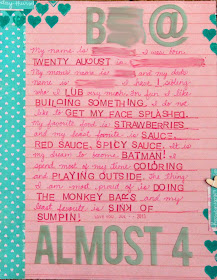 B @
My name is . I was born
TWENTY AUGUST in
My moms name is and my dads
name is . I have 1 sibling
who I LUB very much. For fun, I like
BUILDING SOMETHING. I do not
like to GET MY FACE SPLASHED.
My favorite food is STRAWBERRIES
and my least favorite is SAUCE,
RED SAUCE, SPICY SAUCE. It is
my dream to become BATMAN! I
spend most of my time COLORING
and PLAYING OUTSIDE. The thing
I am most proud of is DOING
THE MONKEY BARS and my
least favorite is SINK OF
SUMPIN!
ALMOST 4